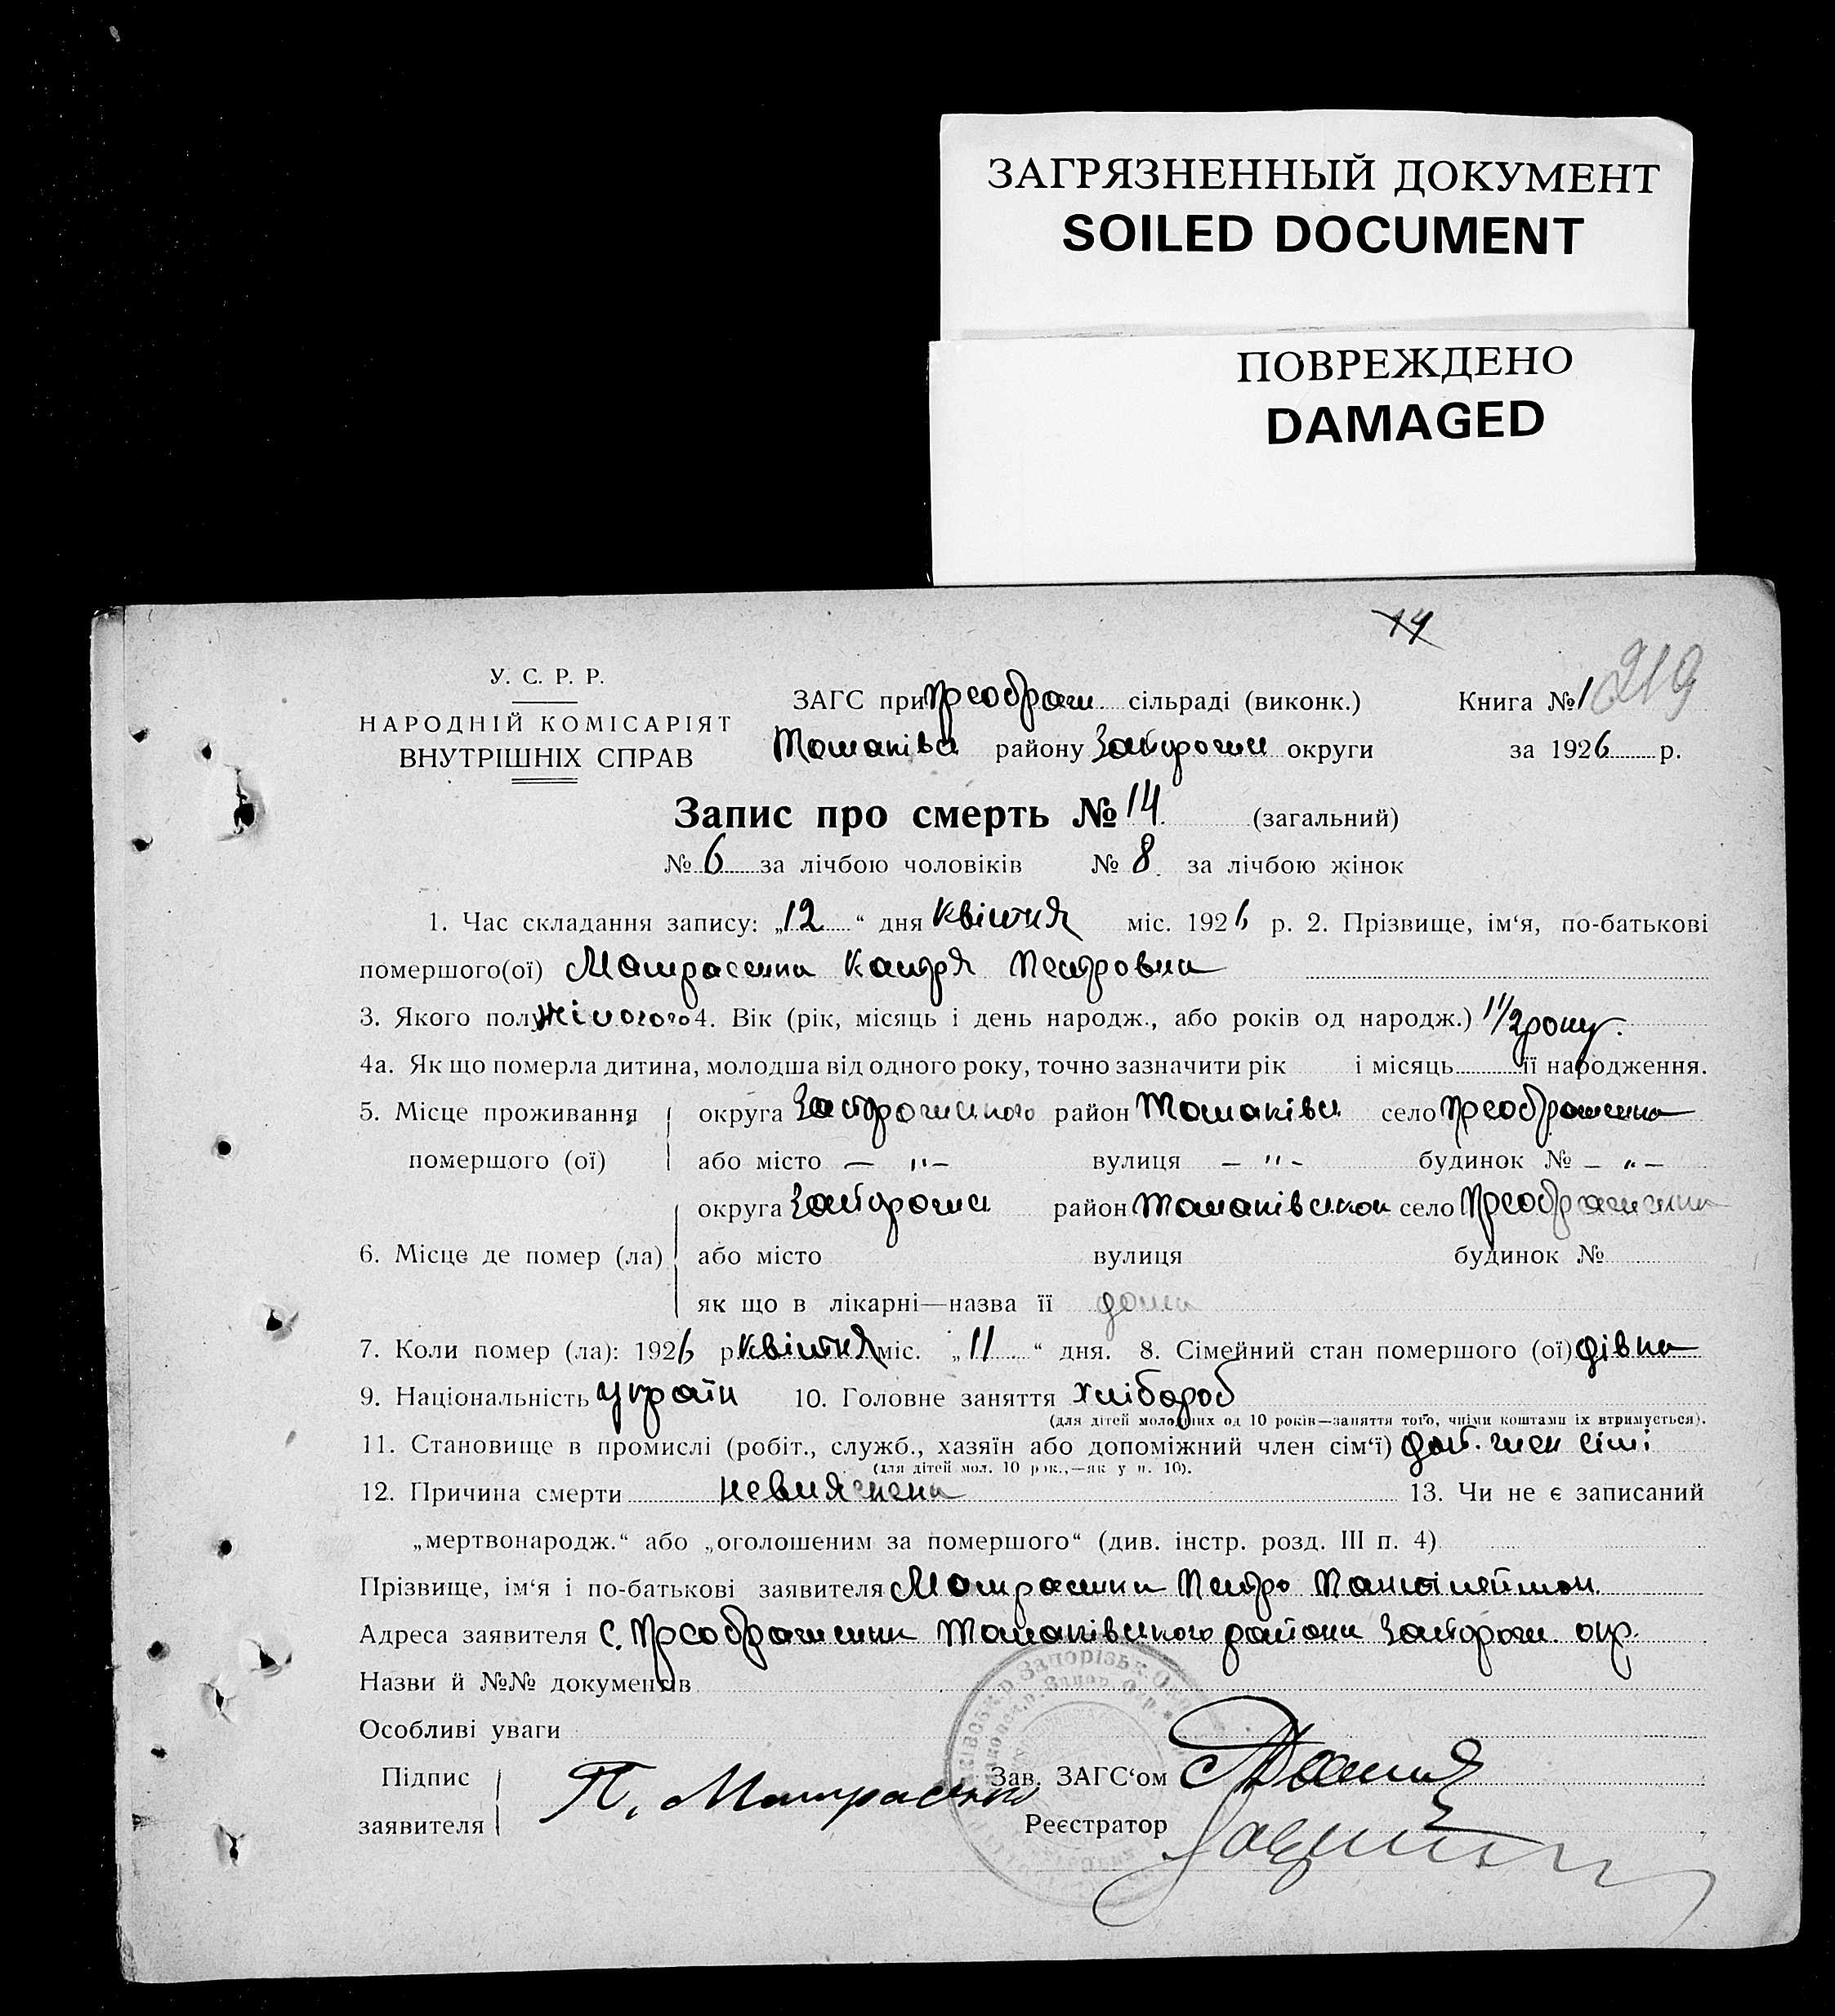 ЗАГРЯЗНЕННЫЙ ДОКУМЕНТ
SOILED DOCUMENT
ПОВРЕЖДЕНО
DAMAGED
14
219
У. С. Р. Р.
НАРОДНІЙ КОМІСАРІЯТ
ВНУТРІШНІХ СПРАВ
ЗАГС при Преображ. сільраді (виконк.) Книга № 1
Томаківс району Запорожс округи за 1926 р.
Запис про смерть № 14 (загальний)
№ 6 за лічбою чоловіків № 8 за лічбою жінок
1. Час складання запису: „12“ дня Квітня міс. 1926 р. 2. Прізвище, ім‘я, по-батькові
помершого(ої) Катря Петровна
3. Якого полу жіночого 4. Вік (рік, місяць і день народж., або років од народж.) 1 1/2 року.
4а. Як що померла дитина, молодша від одного року, точно зазначити рік і місяць її народження.
5. Місце проживання округа Запорожського район Томаківс село Преображенка
помершого (ої) або місто — „ — вулиця — „ — будинок № — „ —
округа Запорожс район Томаківском село Преображенка
6. Місце де помер (ла) або місто вулиця будинок №
як що в лікарні—назва її дома
7. Коли помер (ла): 1926 р Квітня міс. „11“ дня. 8. Сімейний стан помершого (ої) дівка
9. Національність україн 10. Головне заняття хлібороб
(для дітей молодших од 10 років—заняття того, чиїми коштами їх втримується).
11. Становище в промислі (робіт., служб., хазяїн або допоміжний член сім‘ї) доп. член сімі
(для дітей мол. 10 рок.,—як у п. 10).
12. Причина смерти невияснена 13. Чи не є записаний
„мертвонародж.“ або „оголошеним за помершого“ (див. інстр. розд. III п. 4)
Прізвище, ім‘я і по-батькові заявителя Петро
Адреса заявителя с. Преображенки Томаківського району Запорож. окр.
Назви й №№ документів
Особливі уваги
Підпис
заявителя
П.
Зав. ЗАГС‘ом
Реєстратор